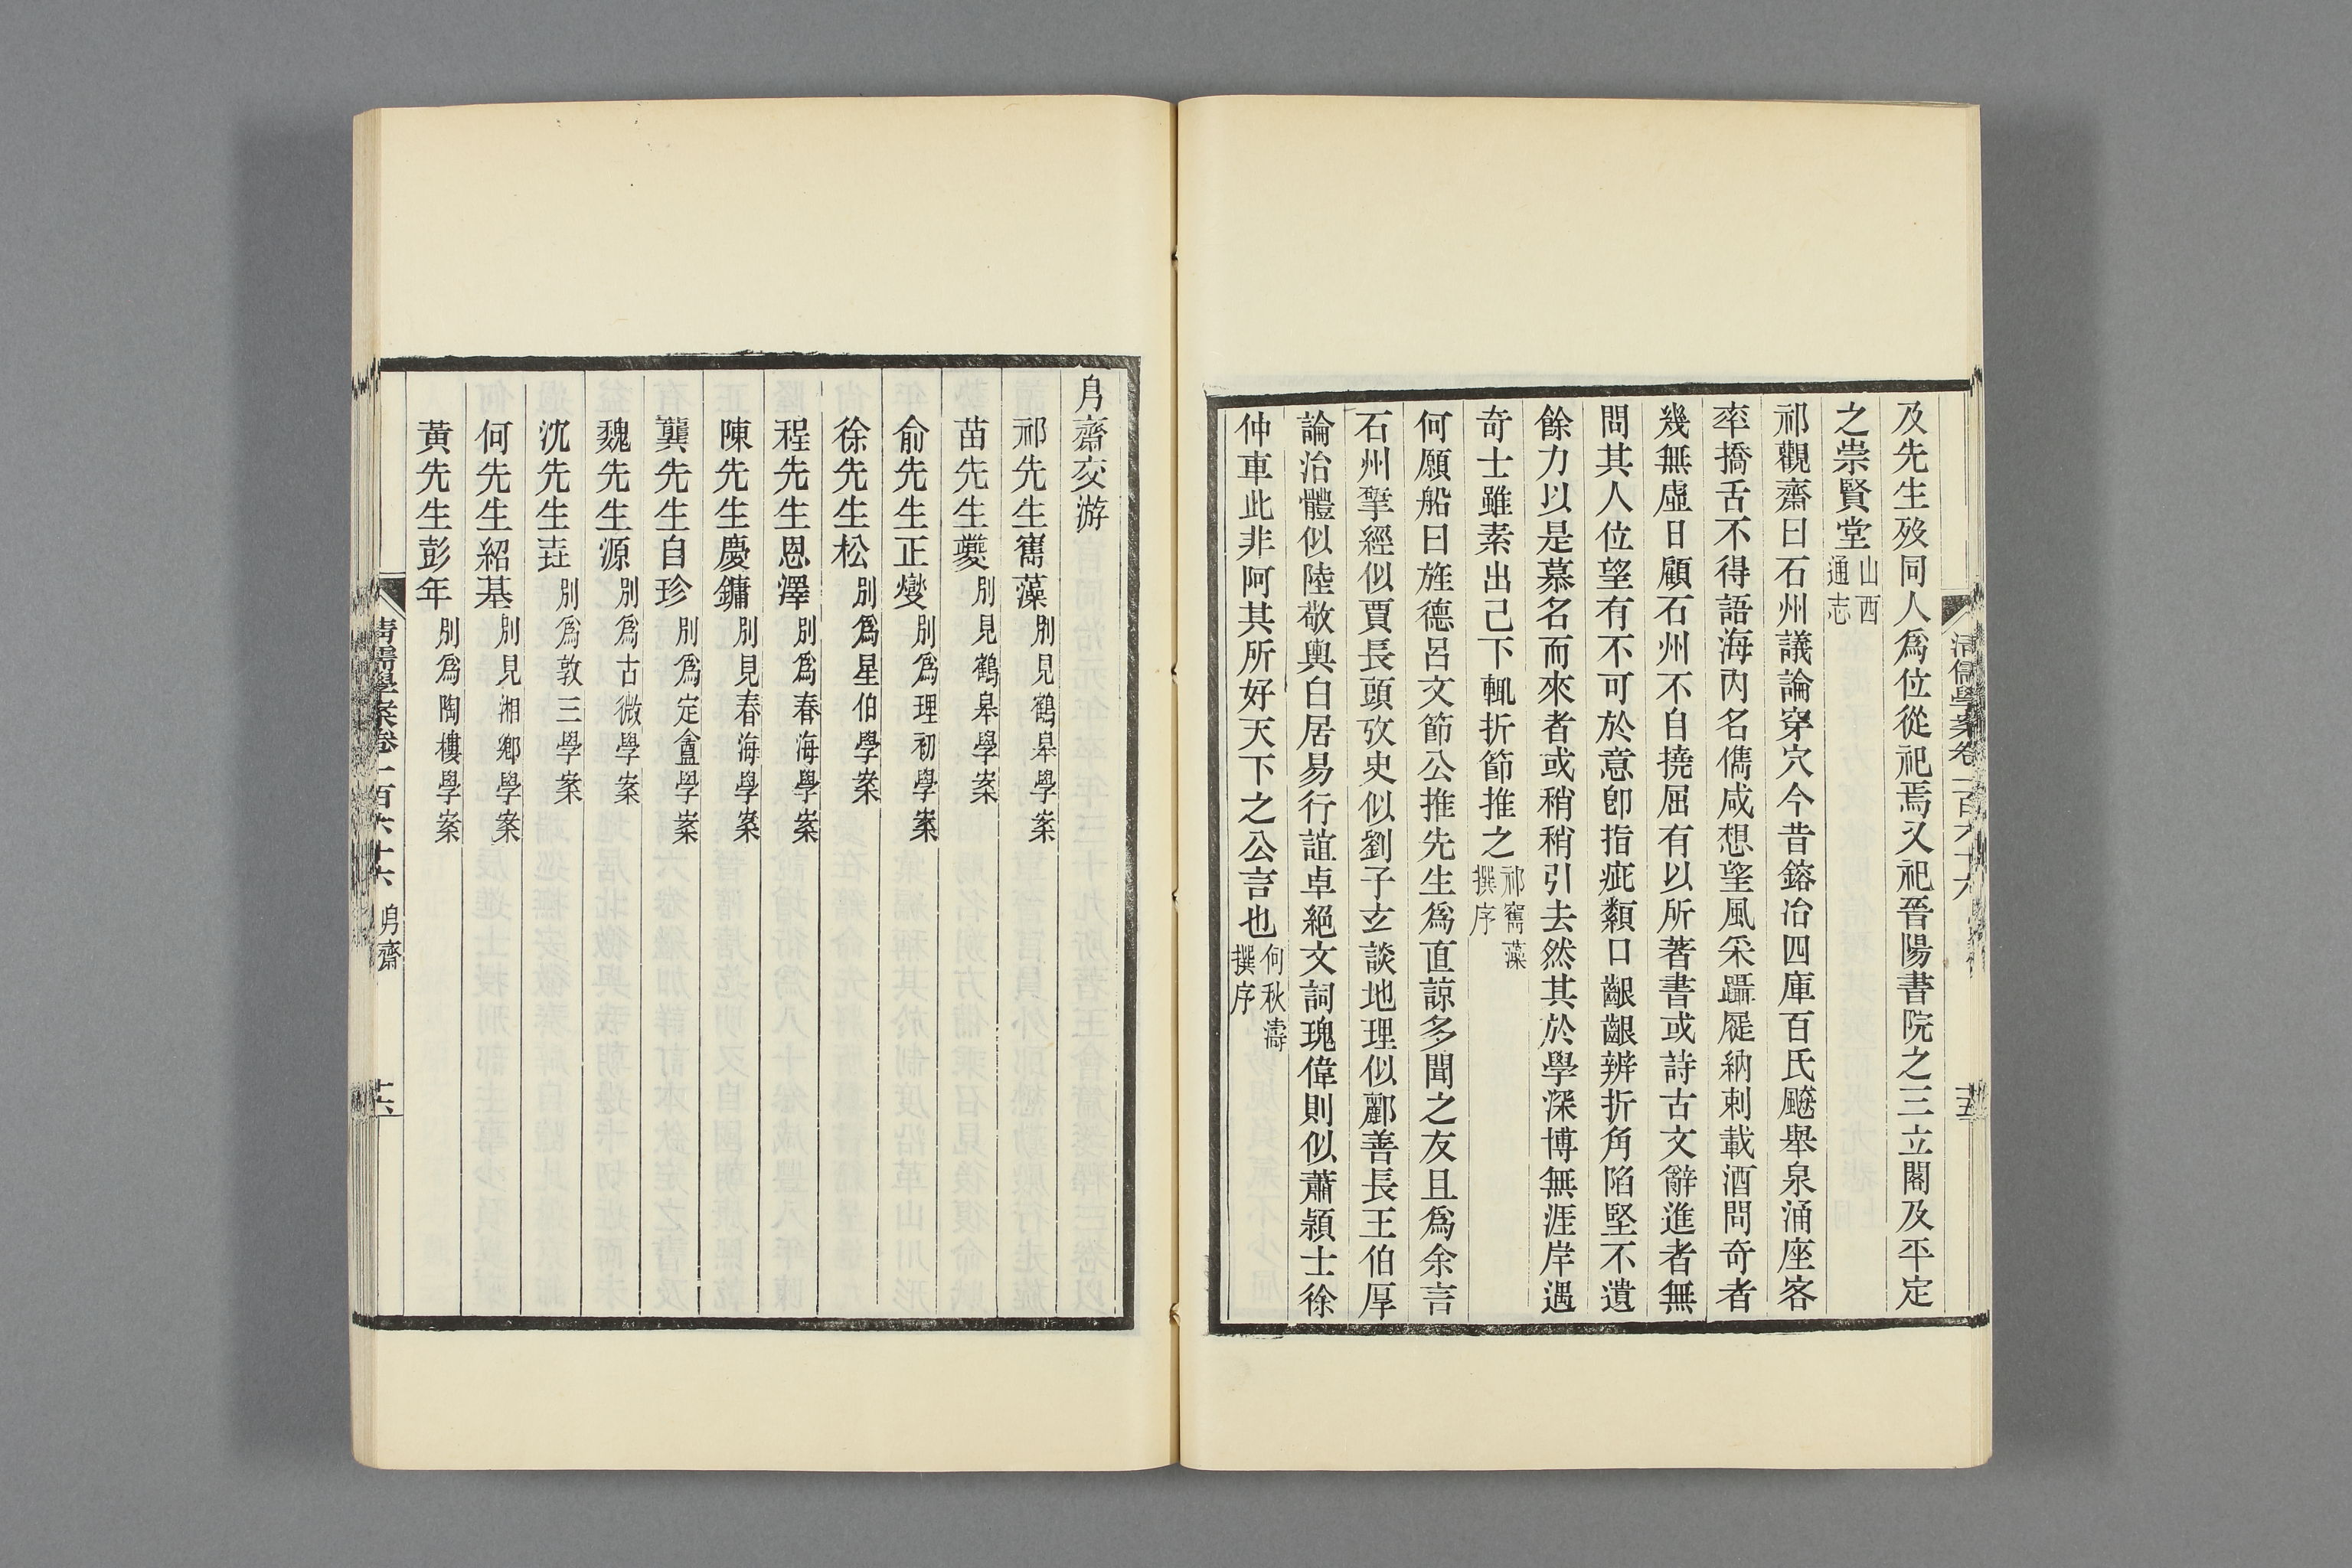 及先生歿同人爲位從祀焉又祀晉陽書院之三立閣及平定
之崇賢堂山西通志
祁觀齋曰石州議論穿穴今昔鎔冶四庫百氏飈舉泉涌座客
率撟舌不得語海內名儁咸想望風采躡屣納刺載酒問奇者
幾無虛日顧石州不自撓屈有以所著書或詩古文辭進者無
問其人位望有不可於意卽指疵纇口齦齦辨折角陷堅不遺
餘力以是慕名而來者或稍稍引去然其於學深博無涯岸遇
奇士雖素出己下輒折節推之祁寯藻撰序
何願船曰旌德呂文節公推先生爲直諒多聞之友且爲余言
石州揅經似賈長頭攷史似劉子玄談地理似酈善長王伯厚
論治體似陸敬輿白居易行誼卓絕文詞瑰偉則似蕭潁士徐
仲車此非阿其所好天下之公言也何秋濤撰序
清儒學案卷一百六十六
十五
㐆齋交游
祁先生寯藻別見鶴皋學案
苗先生夔別見鶴皋學案
俞先生正燮別爲理初學案
徐先生松別爲星伯學案
程先生恩澤別爲春海學案
陳先生慶鏞別見春海學案
龔先生自珍別爲定盦學案
魏先生源別爲古微學案
沈先生垚別爲敦三學案
何先生紹基別見湘鄉學案
黃先生彭年別爲陶樓學案
清儒學案卷一百六十六 㐆齋
十六